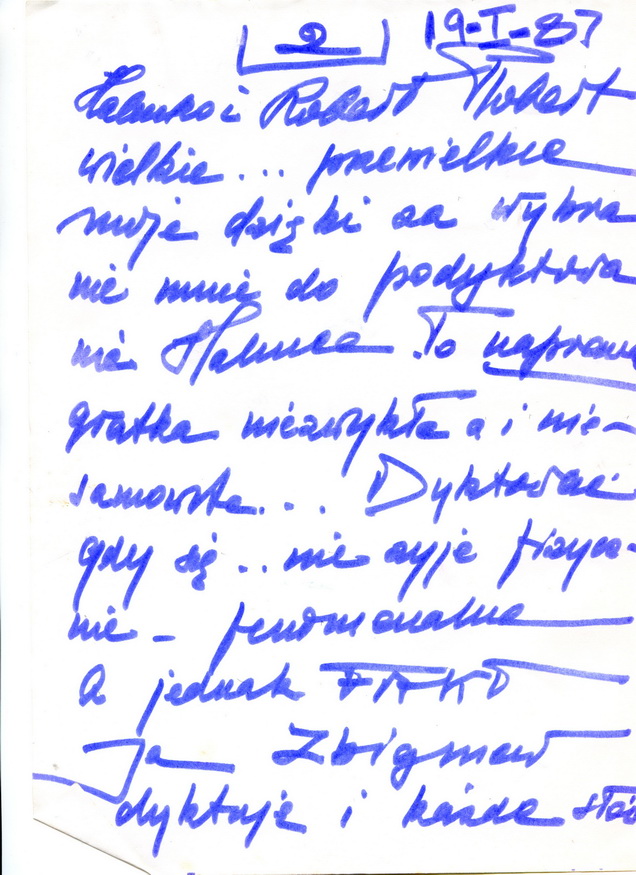 2 19-I-87
Halinko i Robert Robert
wielkie... przewielkie
moje dzięki za wybra
nie mnie do podyktowa
nia Halinca. To naprawd
gratka niezwykła a i nie-
samowita... Dyktować
gdy się .. nie żyje fizycz-
nie - fenomenalne
A jednak FAKT
Ja Zbigniew
dyktuję i każde słow